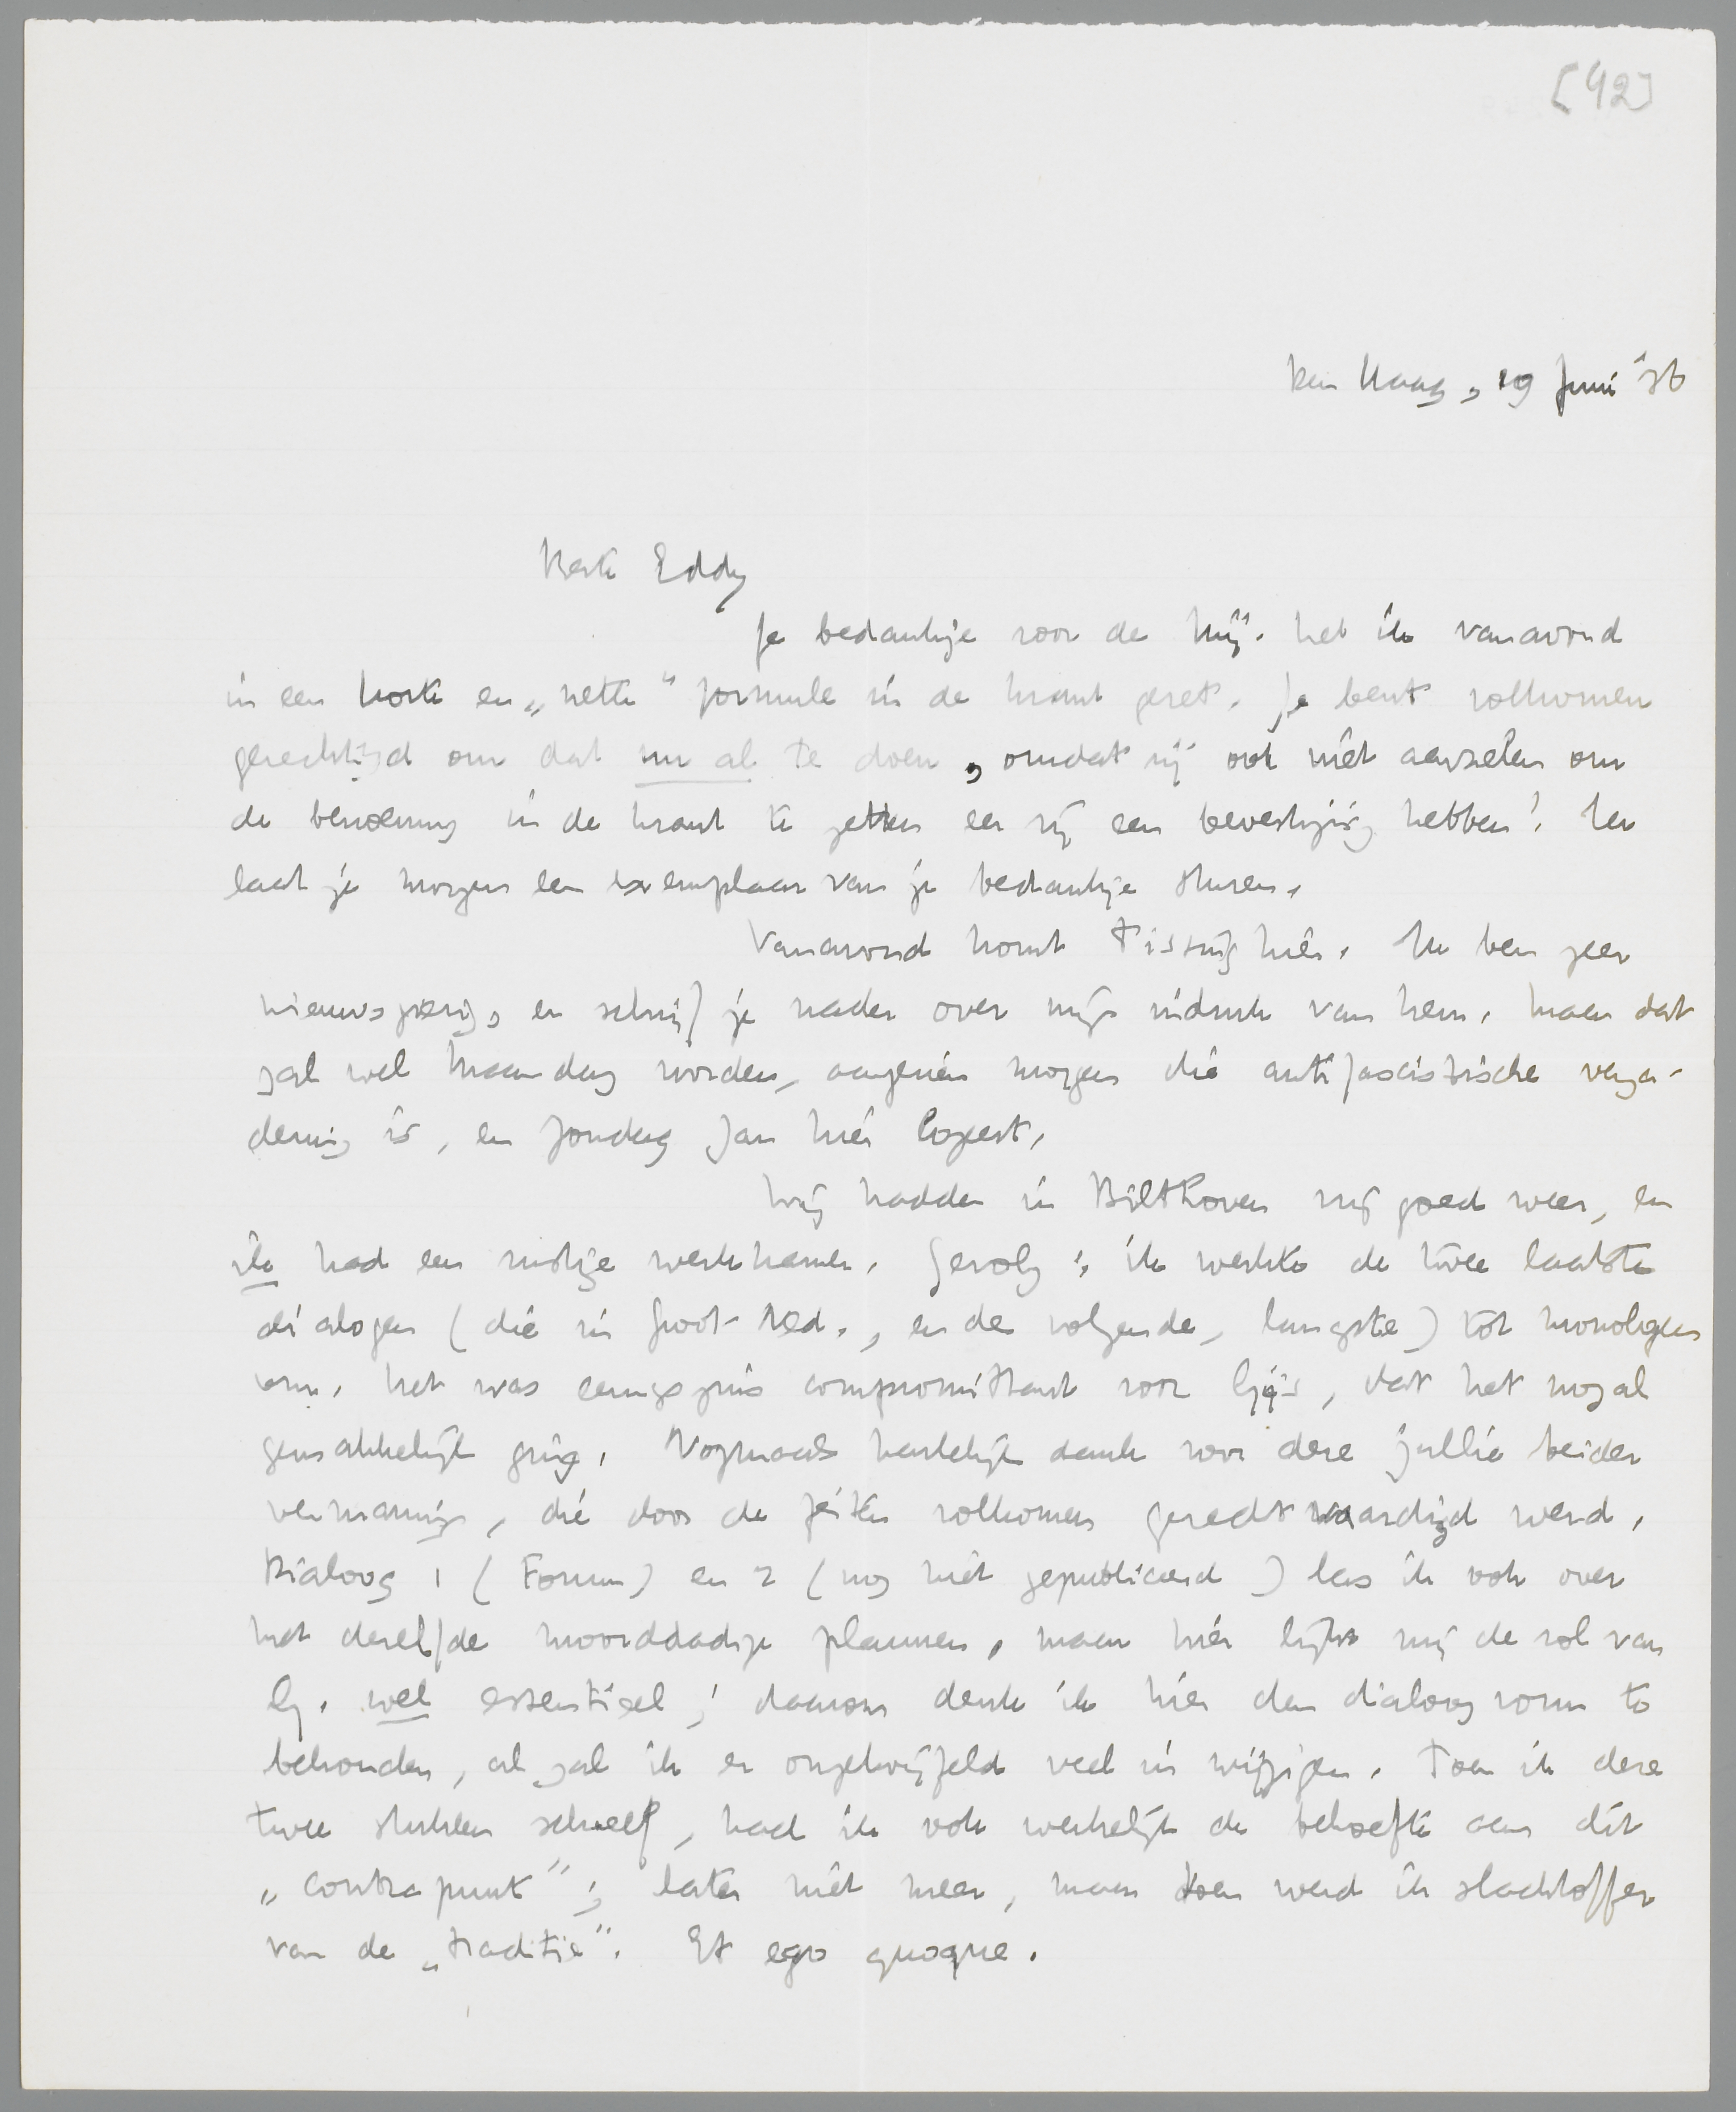 [42]
Den Haag, 19 Juni '36
Beste Eddy
Je bedankje voor de Mij. heb ik vanavond
in een korte en „nette" formule in de krant gezet. Je bent volkomen
gerechtigd om dat nu al te doen, omdat zij ook niet aarzelen om
de benoeming in de krant te zetten eer zij een bevestiging hebben! Ik
laat je morgen een exemplaar van je bedankje sturen.
Vanavond komt Tissing hier. Ik ben zeer
nieuwsgierig, en schrijf je nader over mijn indruk van hem. Maar dat
zal wel Maandag worden, aangezien morgen die antifascistische verga-
dering is, en Zondag Jan hier logeert.
Wij hadden in Bilthoven vrij goed weer, en
ik had een rustige werkkamer. Gevolg: ik werkte de twee laatste
dialogen (die in Groot-Ned., en de volgende, langste) tot monologen
om. Het was eenigszins compromittant voor Gijs, dat het nogal
gemakkelijk ging. Nogmaals hartelijk dank voor deze jullie beider
vermaning, die door de feiten volkomen gerechtvaardigd werd.
Dialoog 1 (Forum) en 2 (nog niet gepubliceerd) las ik ook over
met dezelfde moorddadige plannen, maar hier lijkt mij de rol van
G. wel essentieel; daarom denk ik hier den dialoogvorm te
behouden, al zal ik er ongetwijfeld veel in wijzigen. Toen ik deze
twee stukken schreef, had ik ook werkelijk de behoefte aan dit
„contrapunt"; later niet meer, maar toen werd ik slachtoffer
van de „traditie". Et ego quoque.